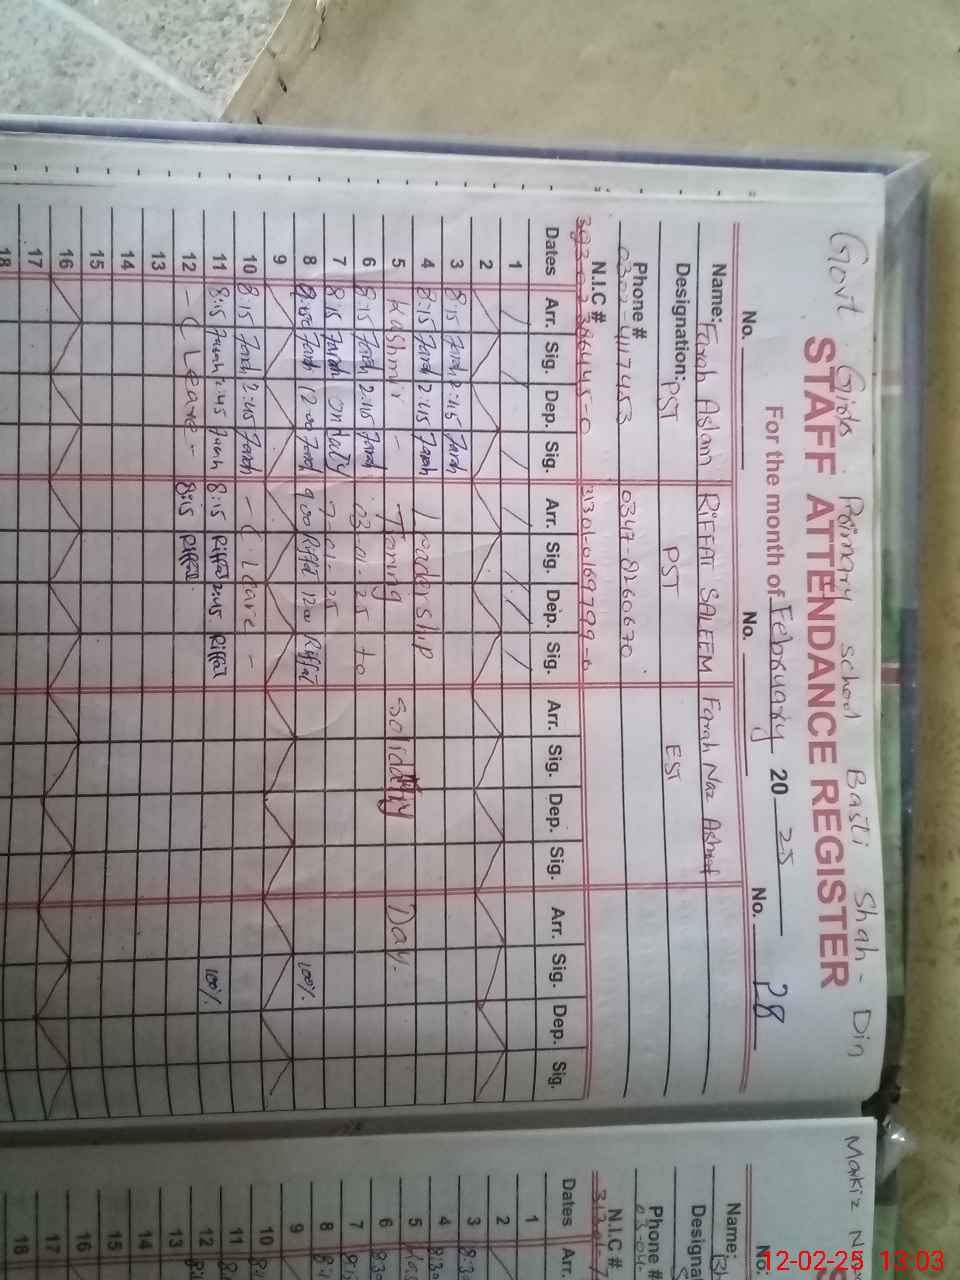 Govt Girls Primary school Basti Shah-Din
STAFF ATTENDANCE REGISTER
For the month of February 20 25
No. No. No. 28
Name: Farah Aslam RIFFAT SALEEM Farah Naz
Designation: PST PST EST
Phone # 0347-8260670
N.I.C #
Dates Arr. Sig. Dep. Sig. Arr. Sig. Dep. Sig. Arr. Sig. Dep. Sig. Arr. Sig. Dep. Sig.
1
2
3 8:15 Farah 2:45 Farah
4 8:15 Farah 2:45 Farah Leadership
5 Kashmir - Solidarity Day.
6 8:15 Farah 2:45 Farah 03-01-25 to
7 8:15 Farah On duty 7-01-25
8 Farah 12:00 Farah 9:00 Riffat 12:00 Riffat 100%
9
10 8:15 Farah 2:45 Farah - ( Leave -
11 8:15 Farah 2:45 Farah 8:15 Riffat 2:45 Riffat 100%
12 - ( Leave - 8:15 Riffat
13
14
15
16
17
18
No:
Name:
Designat
Phone #
N.I.C #
Dates Arr.
1
2
3
4
5
6
7
8
9
10
11
12
13
14
15
16
17
18
12-02-25 13:03